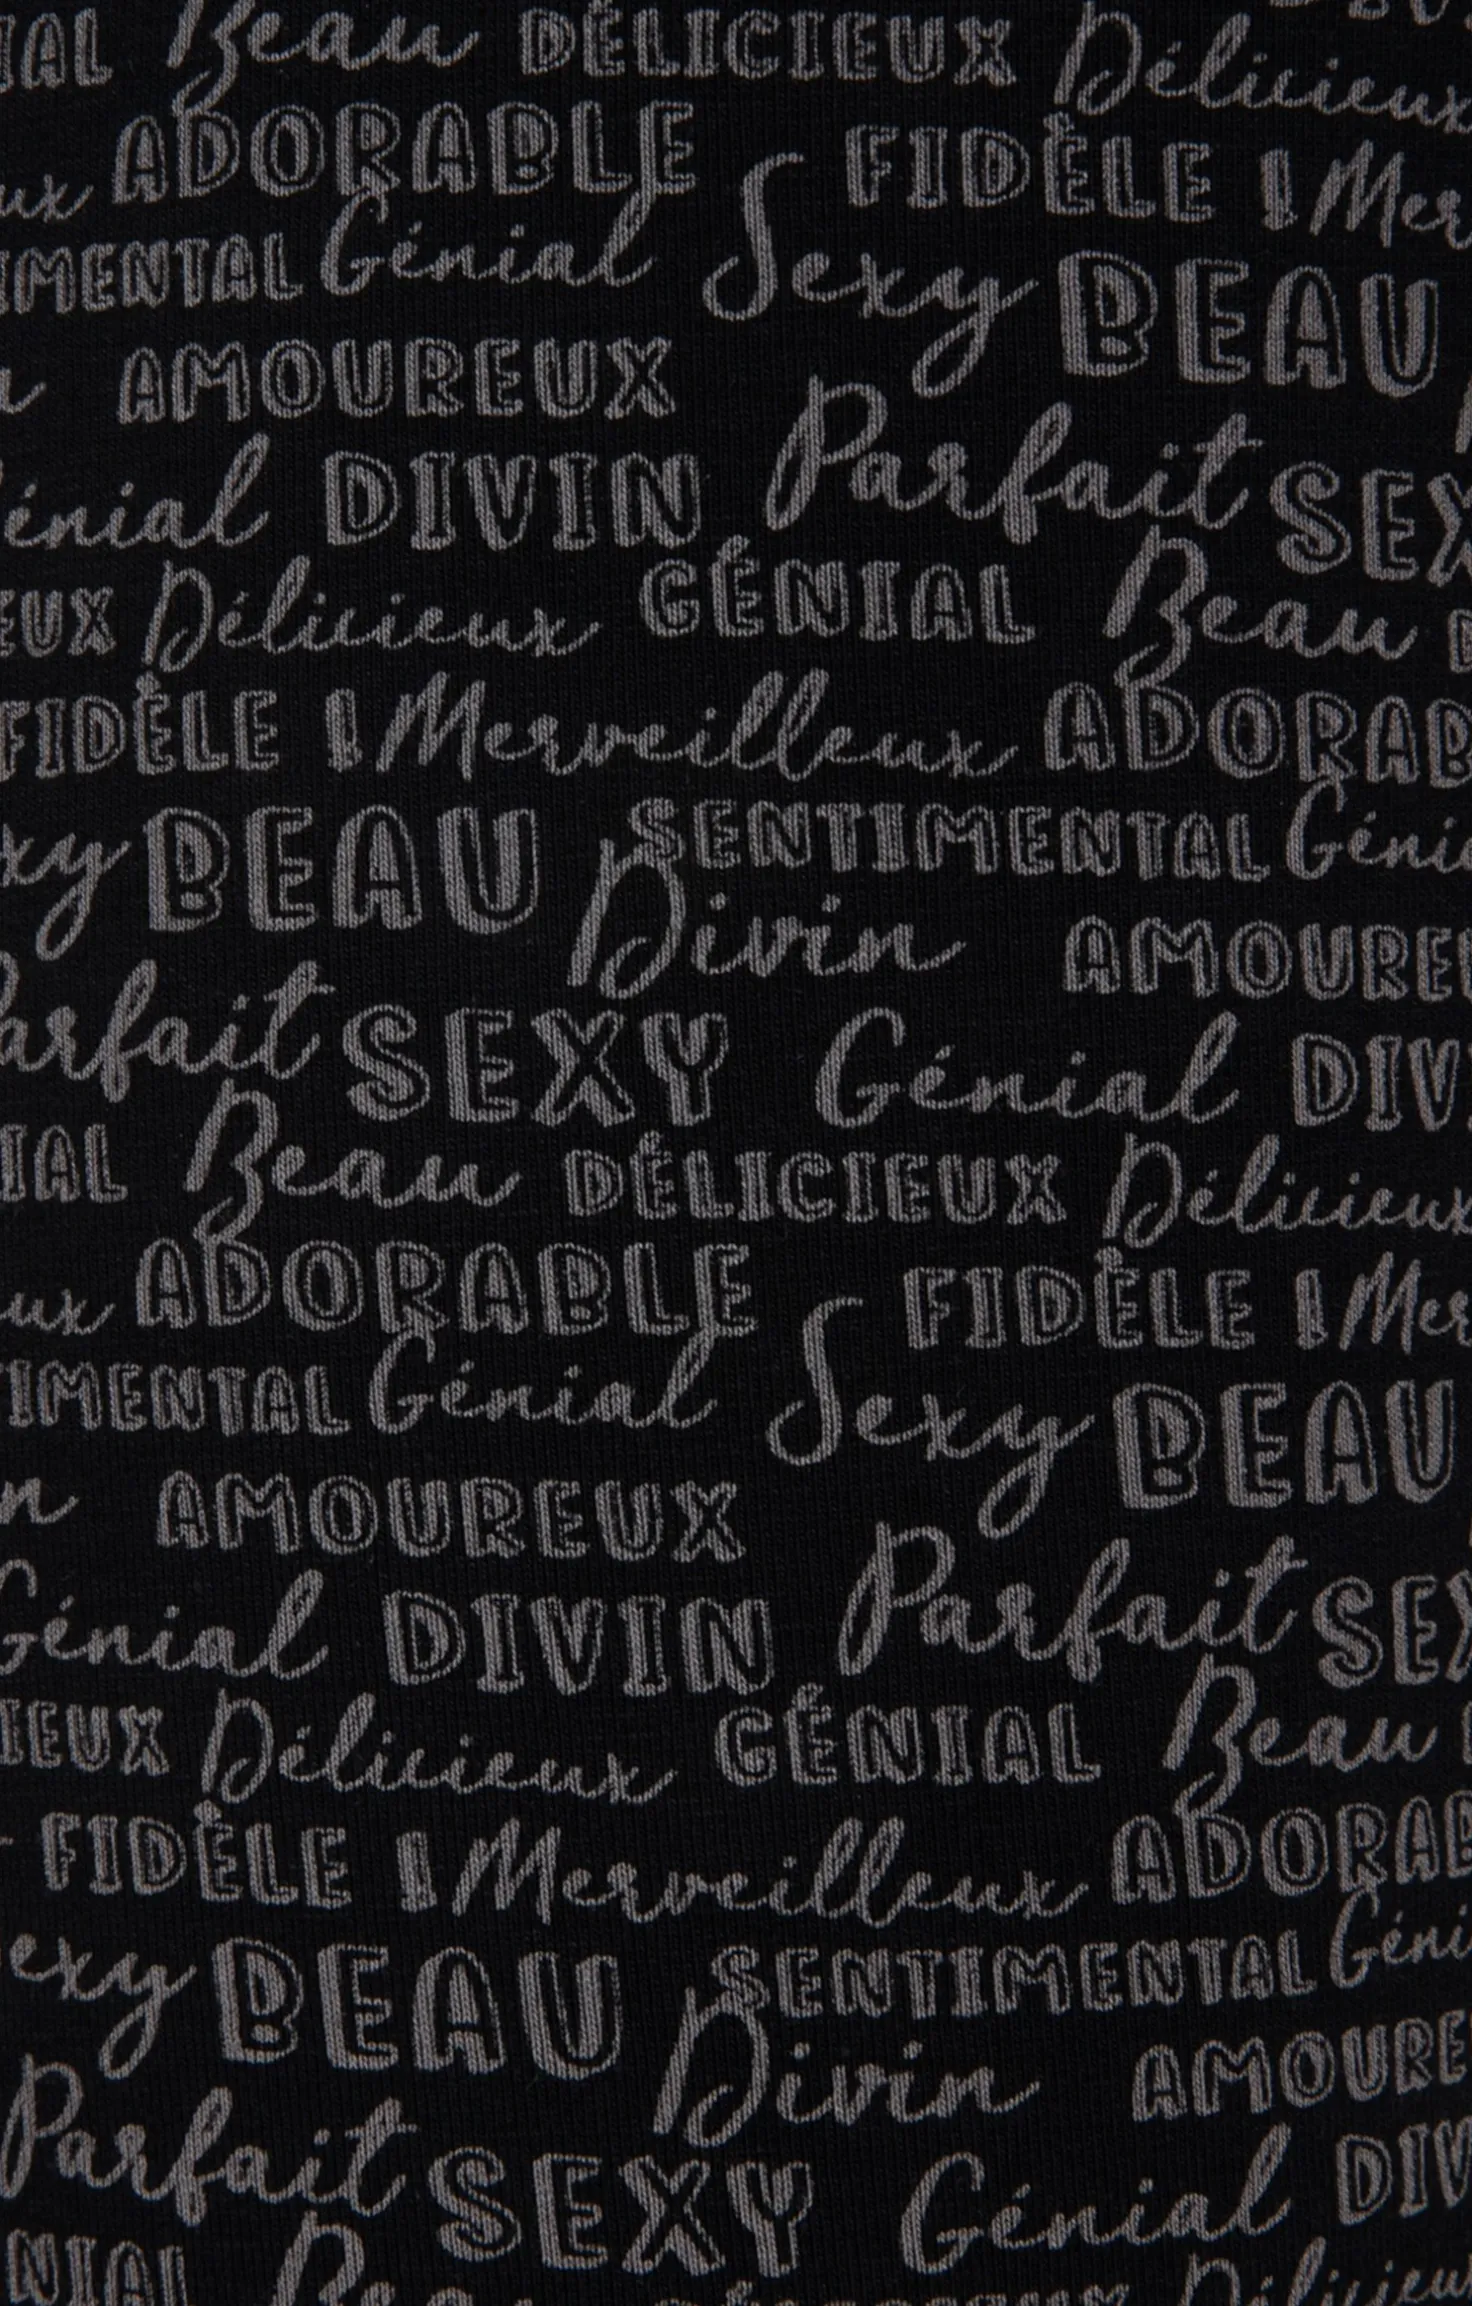 IAL Beau DÉLICIEUX Délicieux
ux ADORABLE FIDÈLE ! Mer
IMENTAL Génial Sexy BEAU
AMOUREUX
énial DIVIN Parfait SEX
EUX Délicieux GÉNIAL Beau D
FIDÈLE ! Merveilleux ADORAB
xy BEAU SENTIMENTAL Géni
Divin AMOURE
arfait SEXY Génial DIVI
IAL Beau DÉLICIEUX Délicieux
ux ADORABLE FIDÈLE ! Mer
IMENTAL Génial Sexy BEAU
n AMOUREUX
Génial DIVIN Parfait SEX
IEUX Délicieux GÉNIAL Beau
FIDÈLE ! Merveilleux ADORAB
exy BEAU SENTIMENTAL Géni
Divin AMOURE
Parfait SEXY Génial DIV
NIAL Beau Délicieu